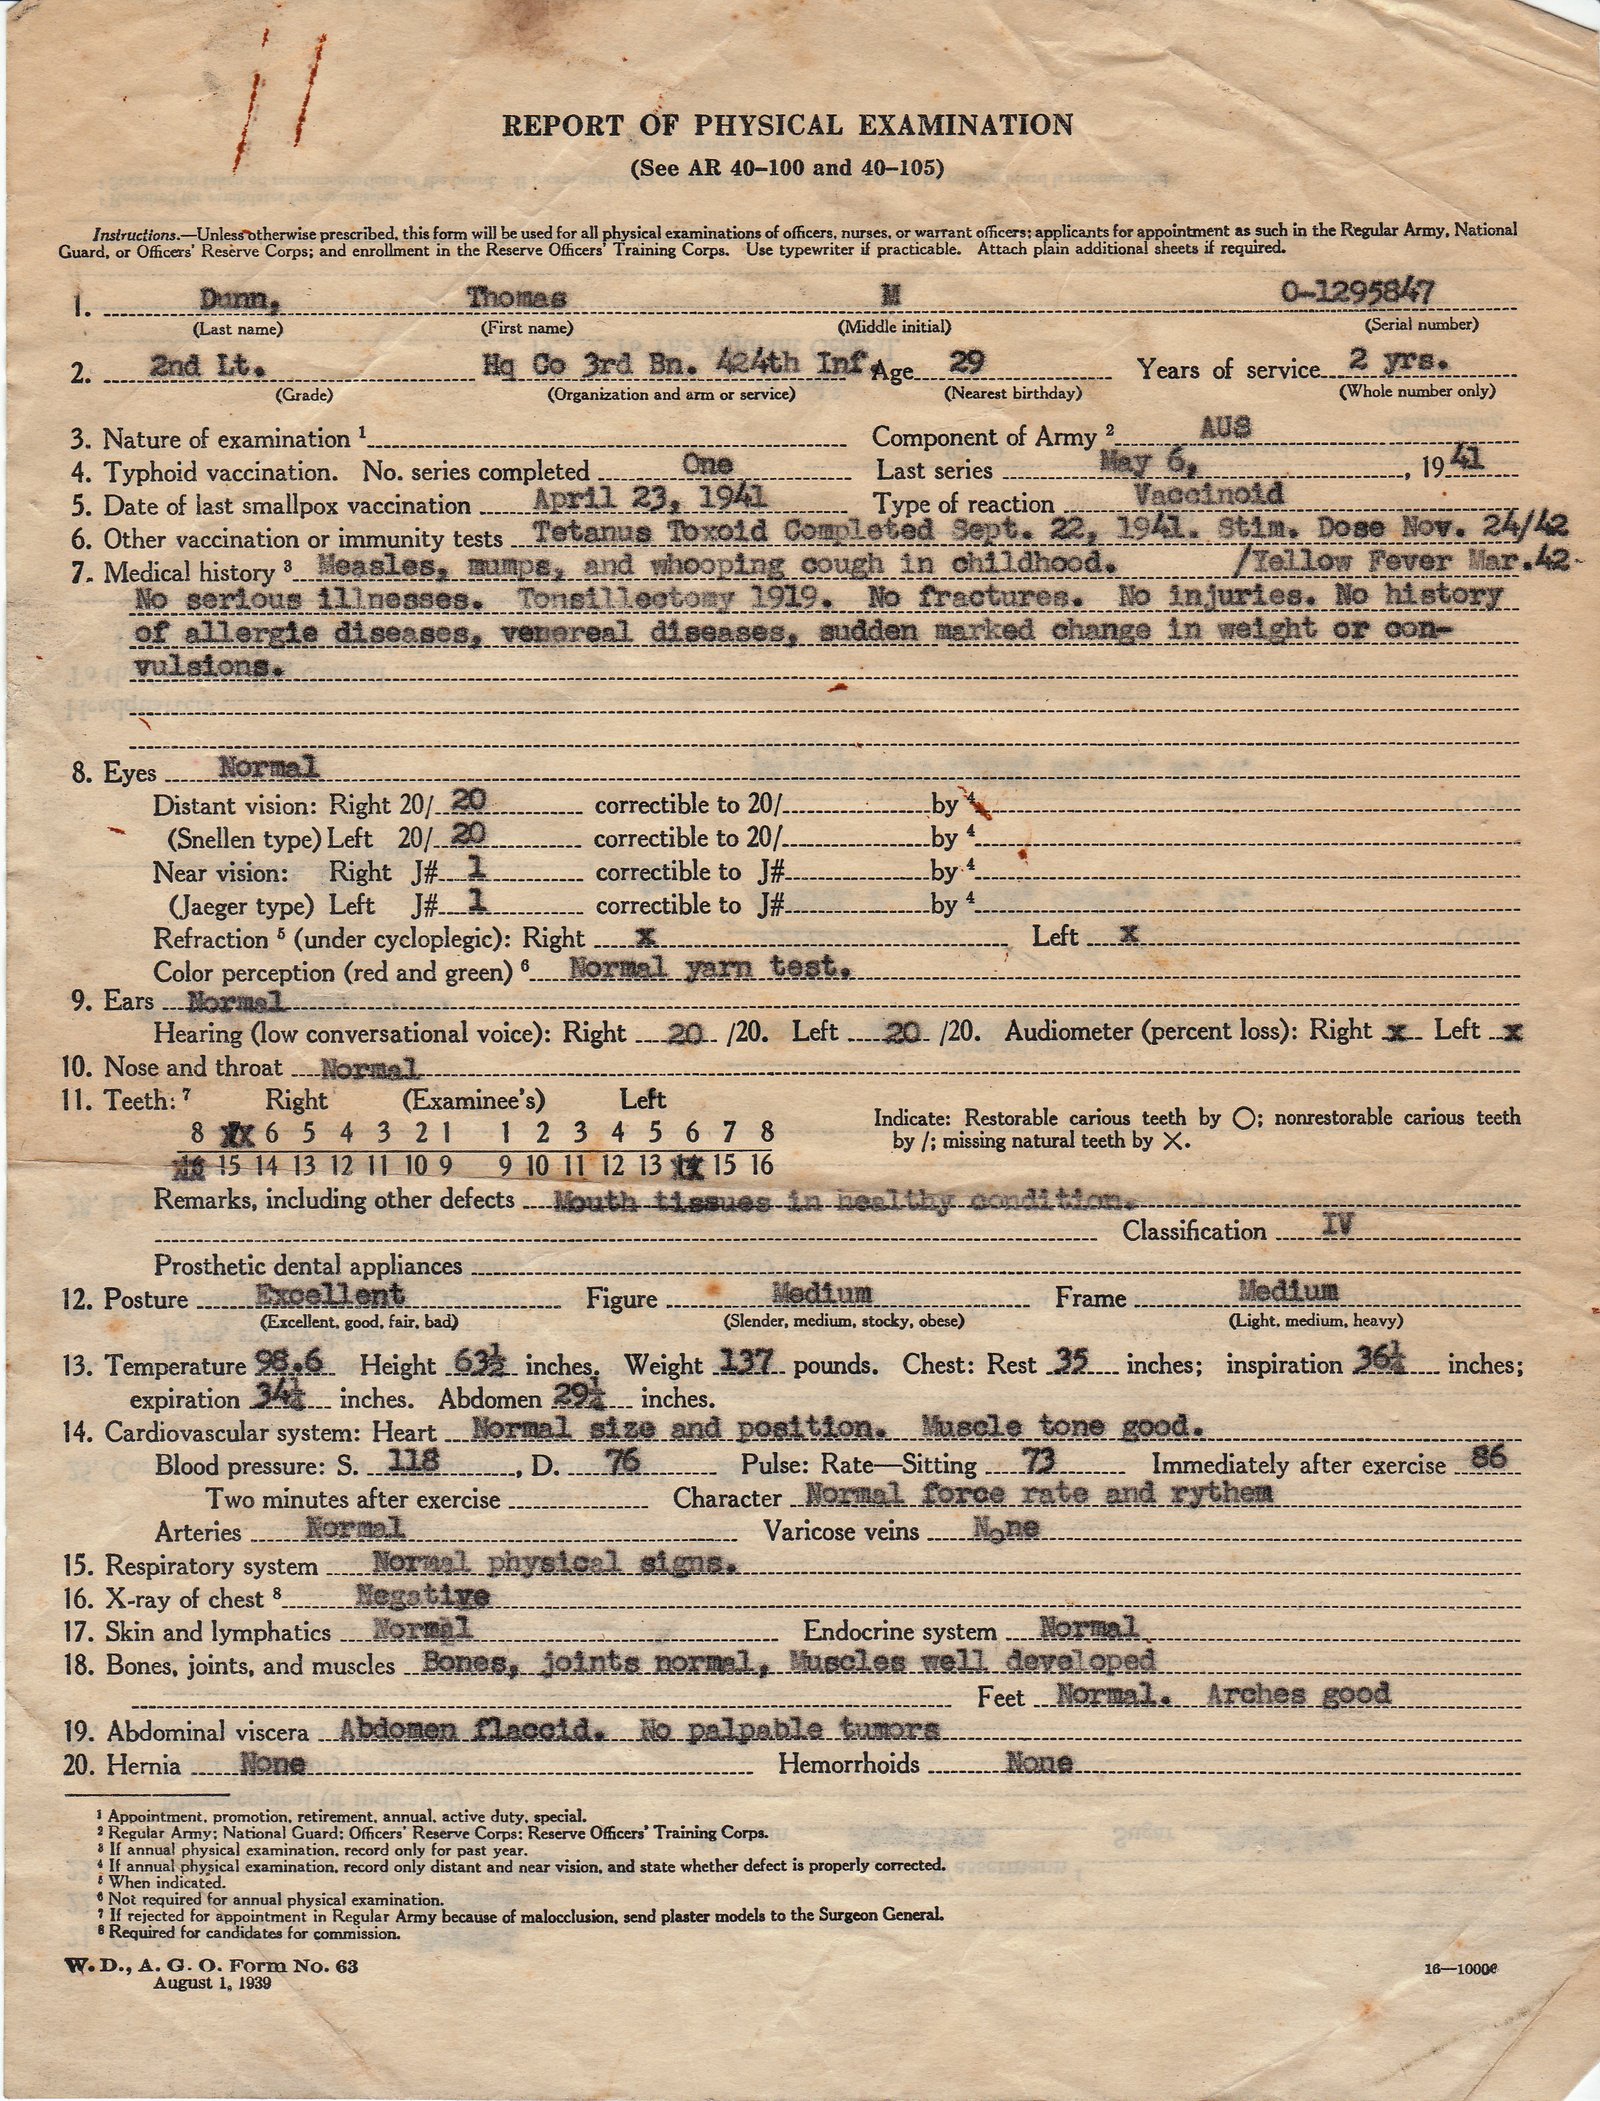 REPORT OF PHYSICAL EXAMINATION
(See AR 40–100 and 40–105)
Instructions.—Unless otherwise prescribed, this form will be used for all physical examinations of officers, nurses, or warrant officers; applicants for appointment as such in the Regular Army, National
Guard, or Officers' Reserve Corps; and enrollment in the Reserve Officers' Training Corps. Use typewriter if practicable. Attach plain additional sheets if required.
1. Dunn, Thomas M O-1295847
(Last name) (First name) (Middle initial) (Serial number)
2. 2nd Lt. Hq Co 3rd Bn. 424th Inf. Age 29 Years of service 2 yrs.
(Grade) (Organization and arm or service) (Nearest birthday) (Whole number only)
3. Nature of examination 1 Component of Army 2 AUS
4. Typhoid vaccination. No. series completed One Last series May 6, , 19 41
5. Date of last smallpox vaccination April 23, 1941 Type of reaction Vaccinoid
6. Other vaccination or immunity tests Tetanus Toxoid Completed Sept. 22, 1941. Stim. Dose Nov. 24/42
7. Medical history 3 Measles, mumps, and whooping cough in childhood. /Yellow Fever Mar.42-
No serious illnesses. Tonsillectomy 1919. No fractures. No injuries. No history
of allergie diseases, venereal diseases, sudden marked change in weight or con-
vulsions.
8. Eyes Normal
Distant vision: Right 20/ 20 correctible to 20/ by 4
(Snellen type) Left 20/ 20 correctible to 20/ by 4
Near vision: Right J# 1 correctible to J# by 4
(Jaeger type) Left J# 1 correctible to J# by 4
Refraction 5 (under cycloplegic): Right x Left x
Color perception (red and green) 6 Normal yarn test.
9. Ears Normal
Hearing (low conversational voice): Right 20 /20. Left 20 /20. Audiometer (percent loss): Right x Left x
10. Nose and throat Normal
11. Teeth: 7 Right (Examinee's) Left
Indicate: Restorable carious teeth by ○; nonrestorable carious teeth
by /; missing natural teeth by ×.
8 7 6 5 4 3 2 1 1 2 3 4 5 6 7 8
16 15 14 13 12 11 10 9 9 10 11 12 13 14 15 16
Remarks, including other defects Mouth tissues in healthy condition.
Classification IV
Prosthetic dental appliances
12. Posture Excellent Figure Medium Frame Medium
(Excellent, good, fair, bad) (Slender, medium, stocky, obese) (Light, medium, heavy)
13. Temperature 98.6 Height 63½ inches. Weight 137 pounds. Chest: Rest 35 inches; inspiration 36¼ inches;
expiration 34¼ inches. Abdomen 29¼ inches.
14. Cardiovascular system: Heart Normal size and position. Muscle tone good.
Blood pressure: S. 118 , D. 76 Pulse: Rate—Sitting 73 Immediately after exercise 86
Two minutes after exercise Character Normal force rate and rythem
Arteries Normal Varicose veins None
15. Respiratory system Normal physical signs.
16. X-ray of chest 8 Negative
17. Skin and lymphatics Normal Endocrine system Normal
18. Bones, joints, and muscles Bones, joints normal, Muscles well developed
Feet Normal. Arches good
19. Abdominal viscera Abdomen flaccid. No palpable tumors
20. Hernia None Hemorrhoids None
1 Appointment, promotion, retirement, annual, active duty, special.
2 Regular Army; National Guard; Officers' Reserve Corps; Reserve Officers' Training Corps.
3 If annual physical examination, record only for past year.
4 If annual physical examination, record only distant and near vision, and state whether defect is properly corrected.
5 When indicated.
6 Not required for annual physical examination.
7 If rejected for appointment in Regular Army because of malocclusion, send plaster models to the Surgeon General.
8 Required for candidates for commission.
W. D., A. G. O. Form No. 63
August 1, 1939
16—10006